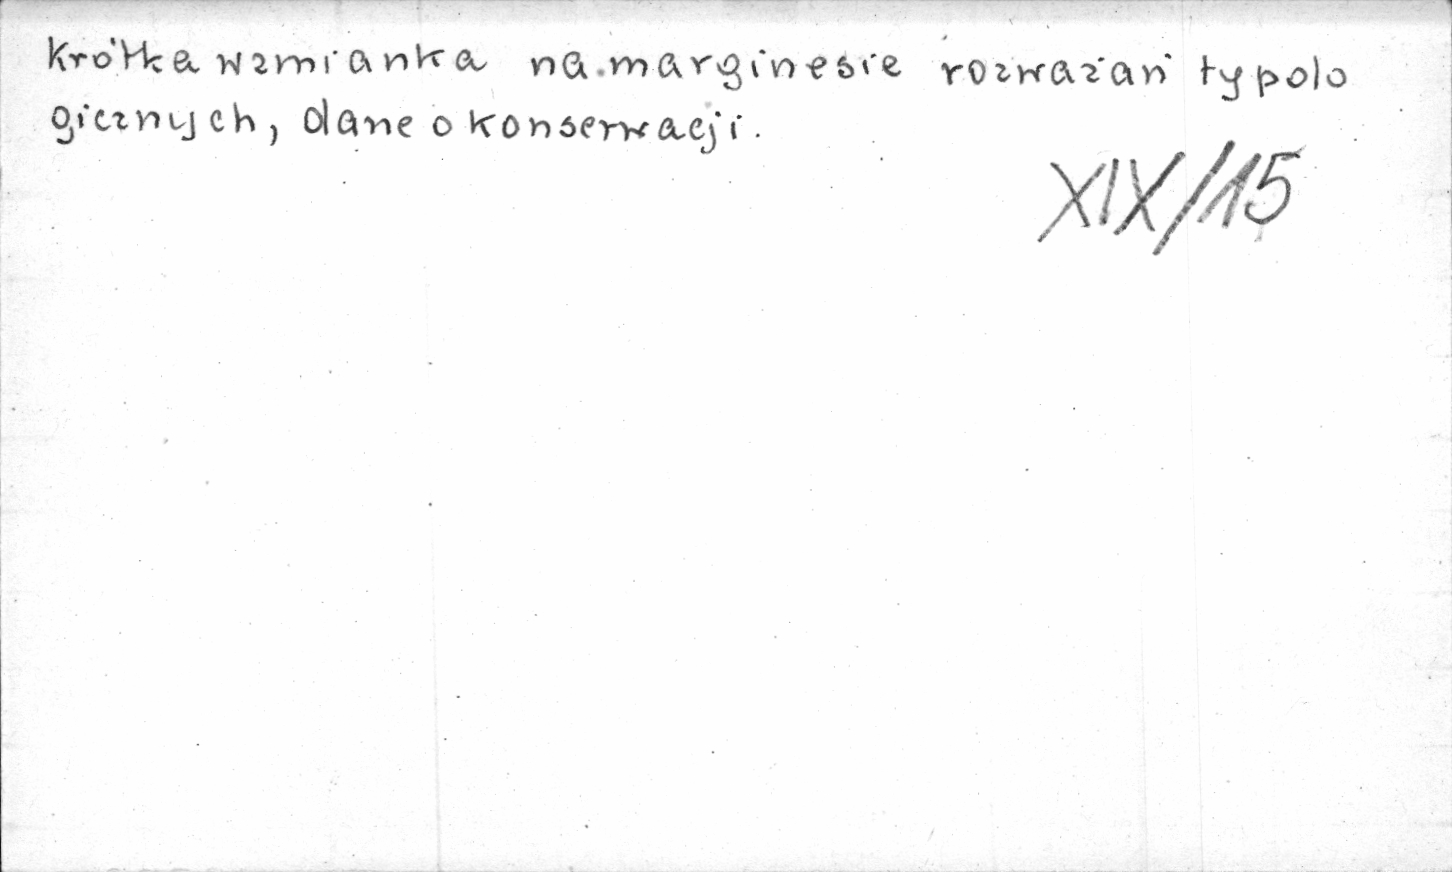 Krótka wzmianka na marginesie rozważań typolo
gicznych, dane o konserwacji.
XIX/15